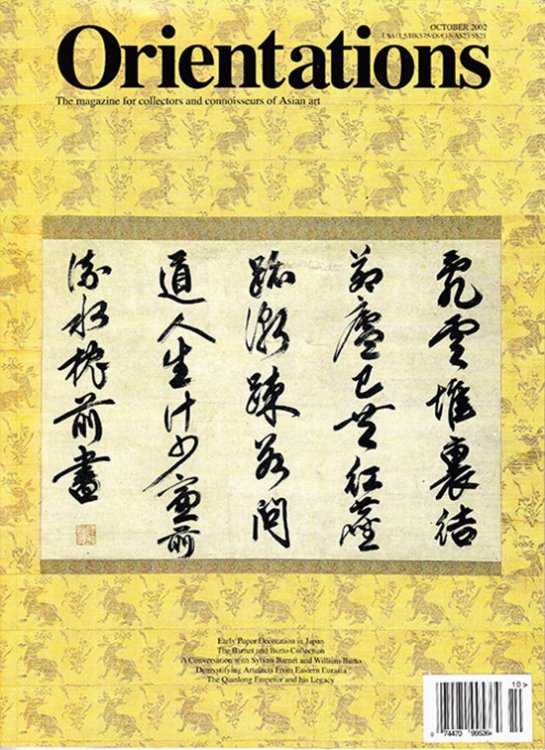 OCTOBER 2002
Orientations
The magazine for collectors and connoisseurs of Asian art
亂雲堆裏結
茆廬已共紅塵
跡漸踈若問
道人生計少窗前
流水枕前書
Early Paper Decoration in Japan
The Barnet and Burto Collection
A Conversation with Sylvan Barnet and William Burto
Demystifying Artefacts From Eastern Eurasia
The Qianlong Emperor and his Legacy
10>
0 74470